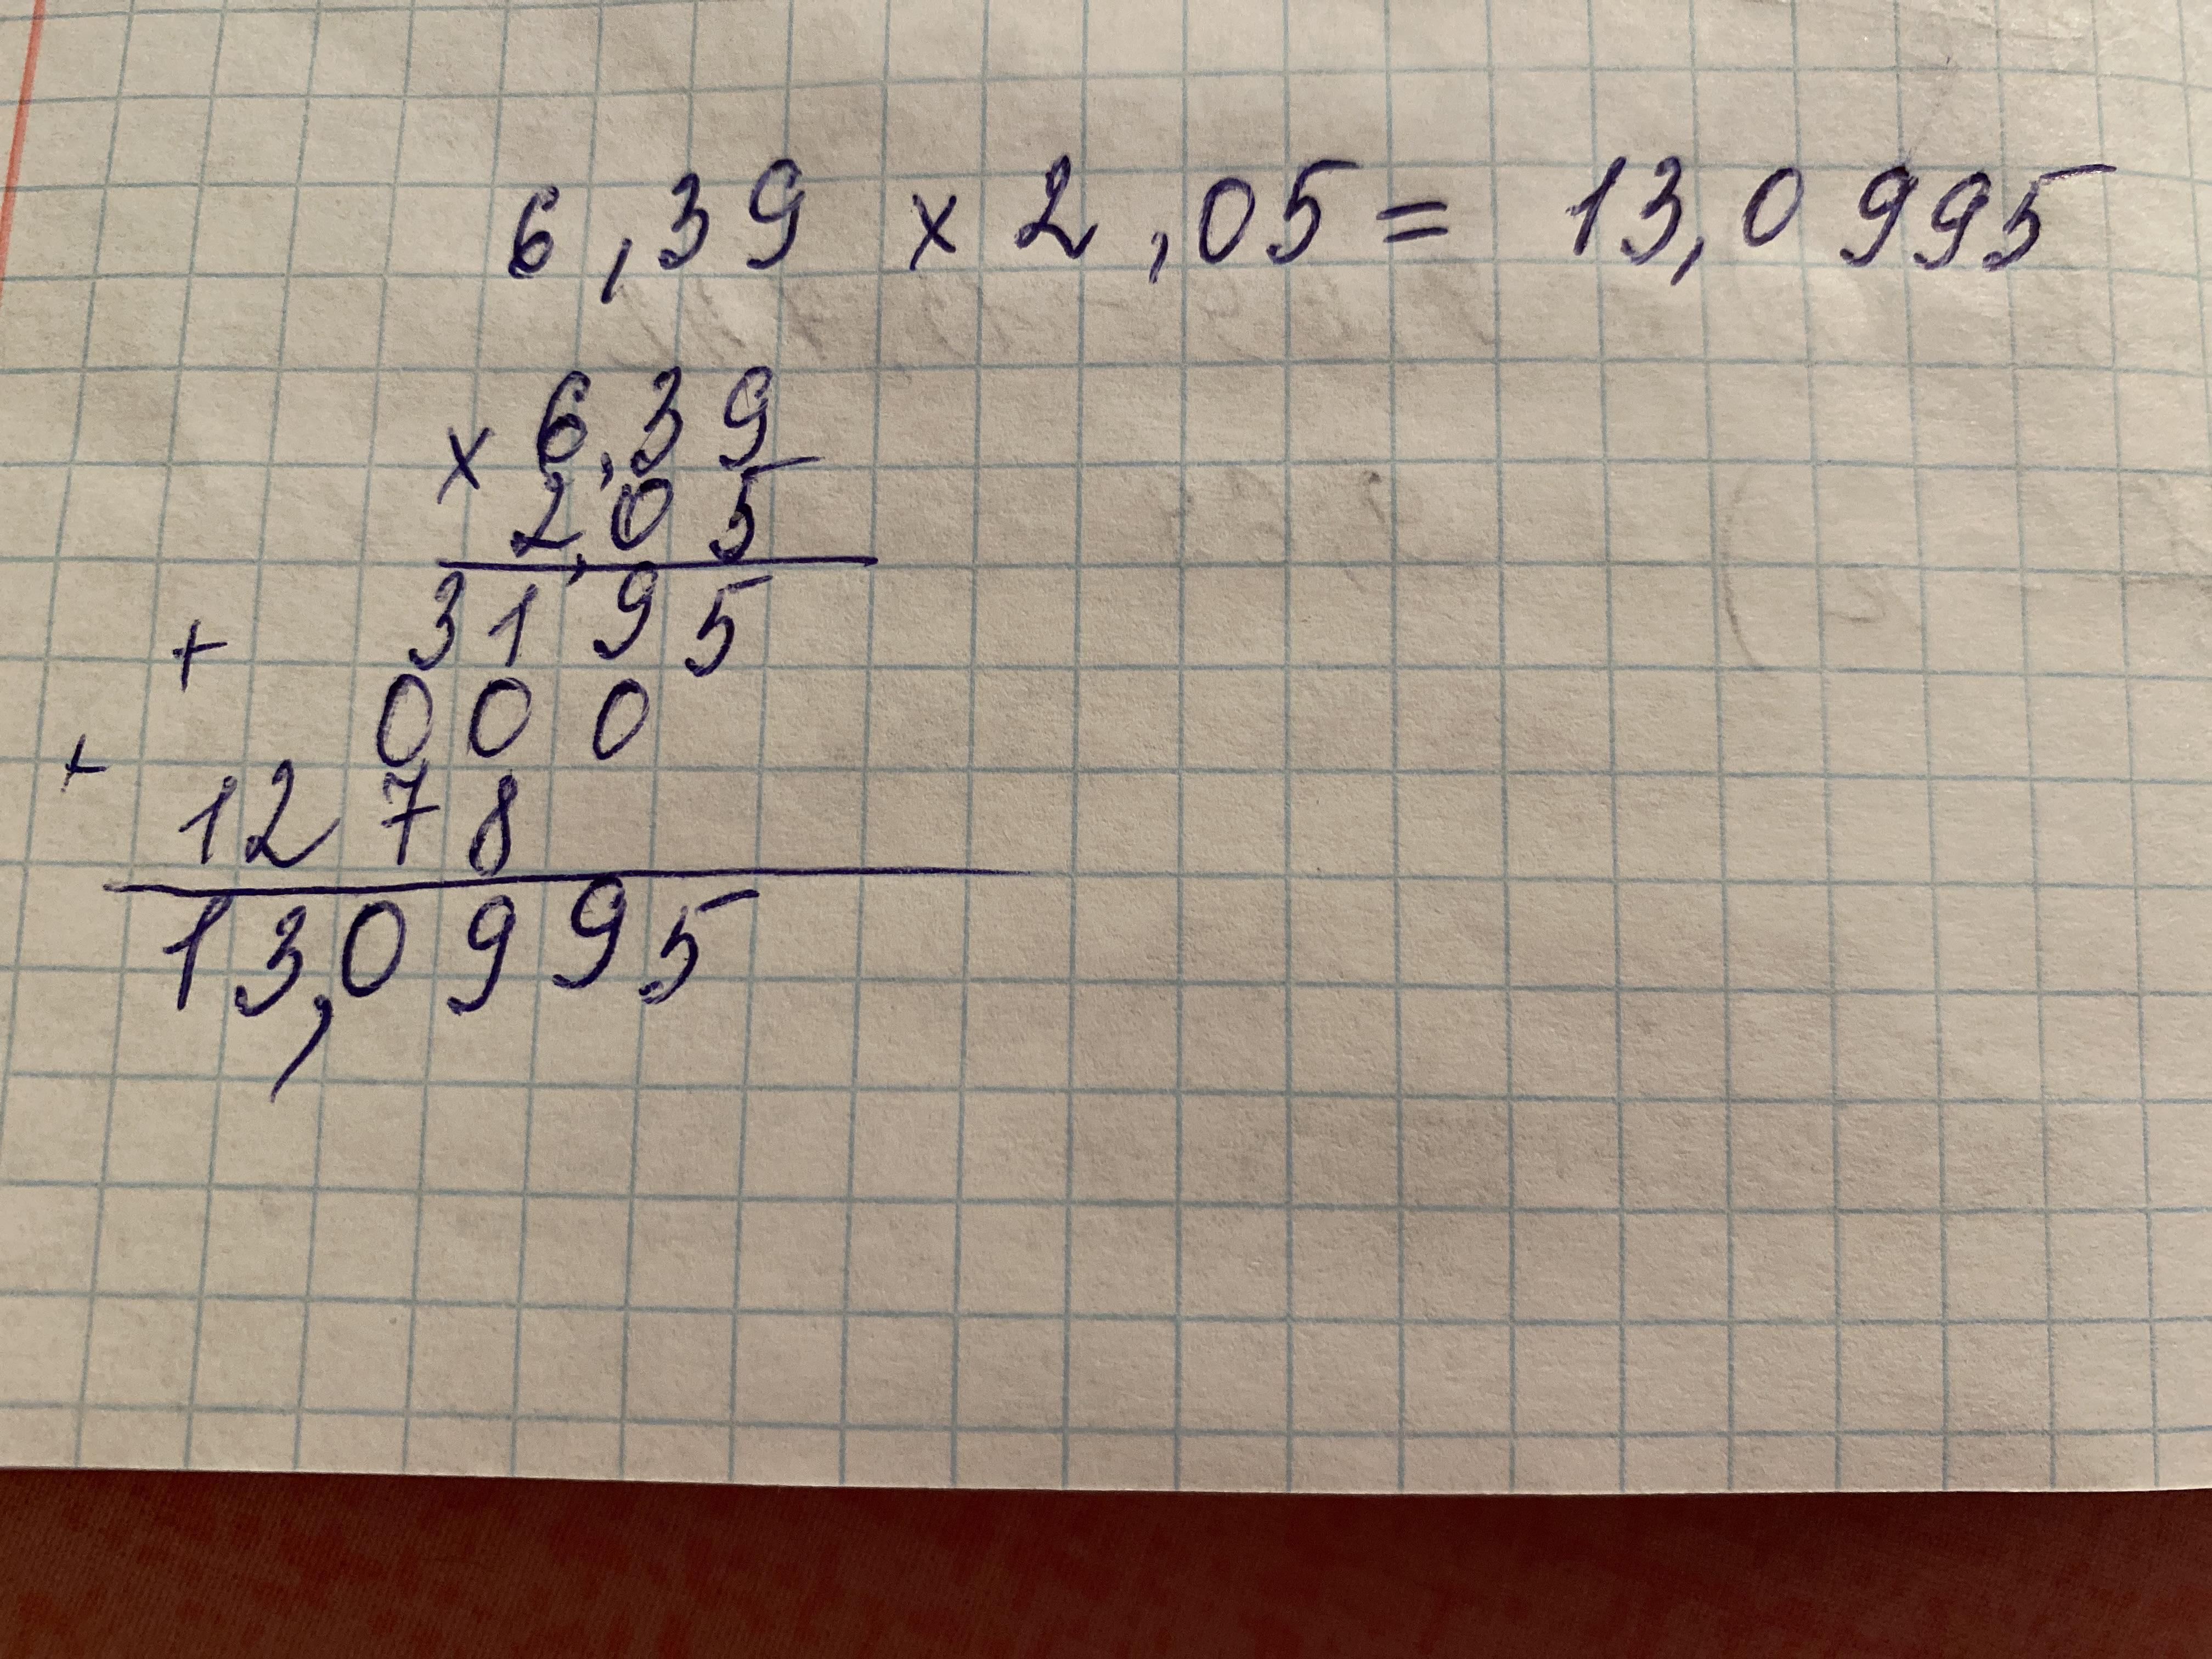 6,39 x 2,05 = 13,0995
x 6,39
2,05
+ 3195
000
+ 1278
13,0995